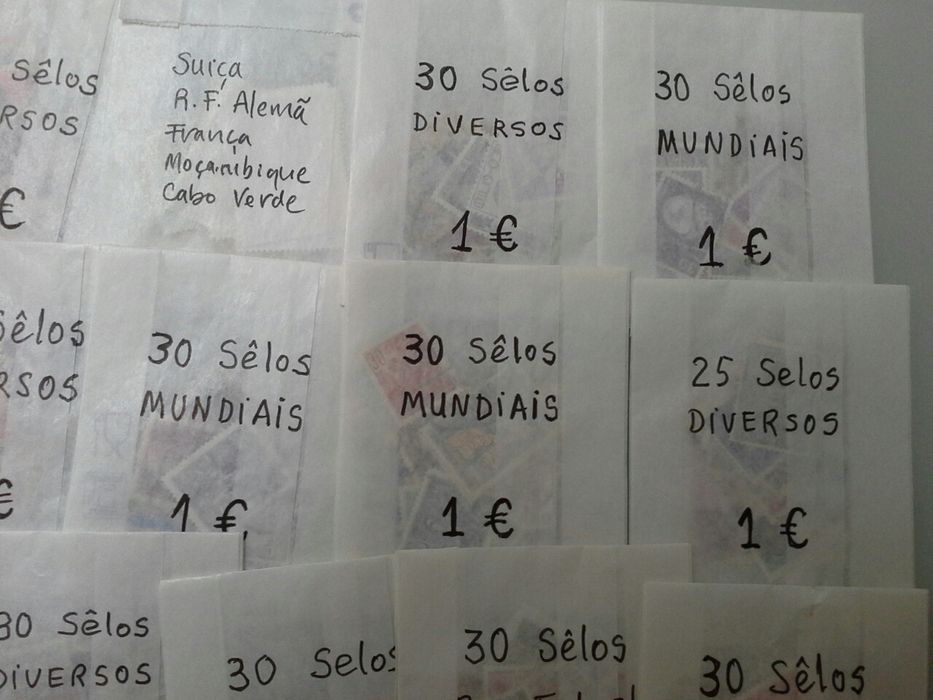 Sêlos
RSOS
€
Suiça
R.F. Alemã
França
Moçambique
Cabo Verde
30 Sêlos
DIVERSOS
1 €
30 Sêlos
MUNDIAIS
1 €
Sêlos
RSOS
€
30 Sêlos
MUNDIAIS
1 €
30 Sêlos
MUNDIAIS
1 €
25 Selos
DIVERSOS
1 €
30 Sêlos
DIVERSOS
30 Selos
30 Sêlos
30 Sêlos